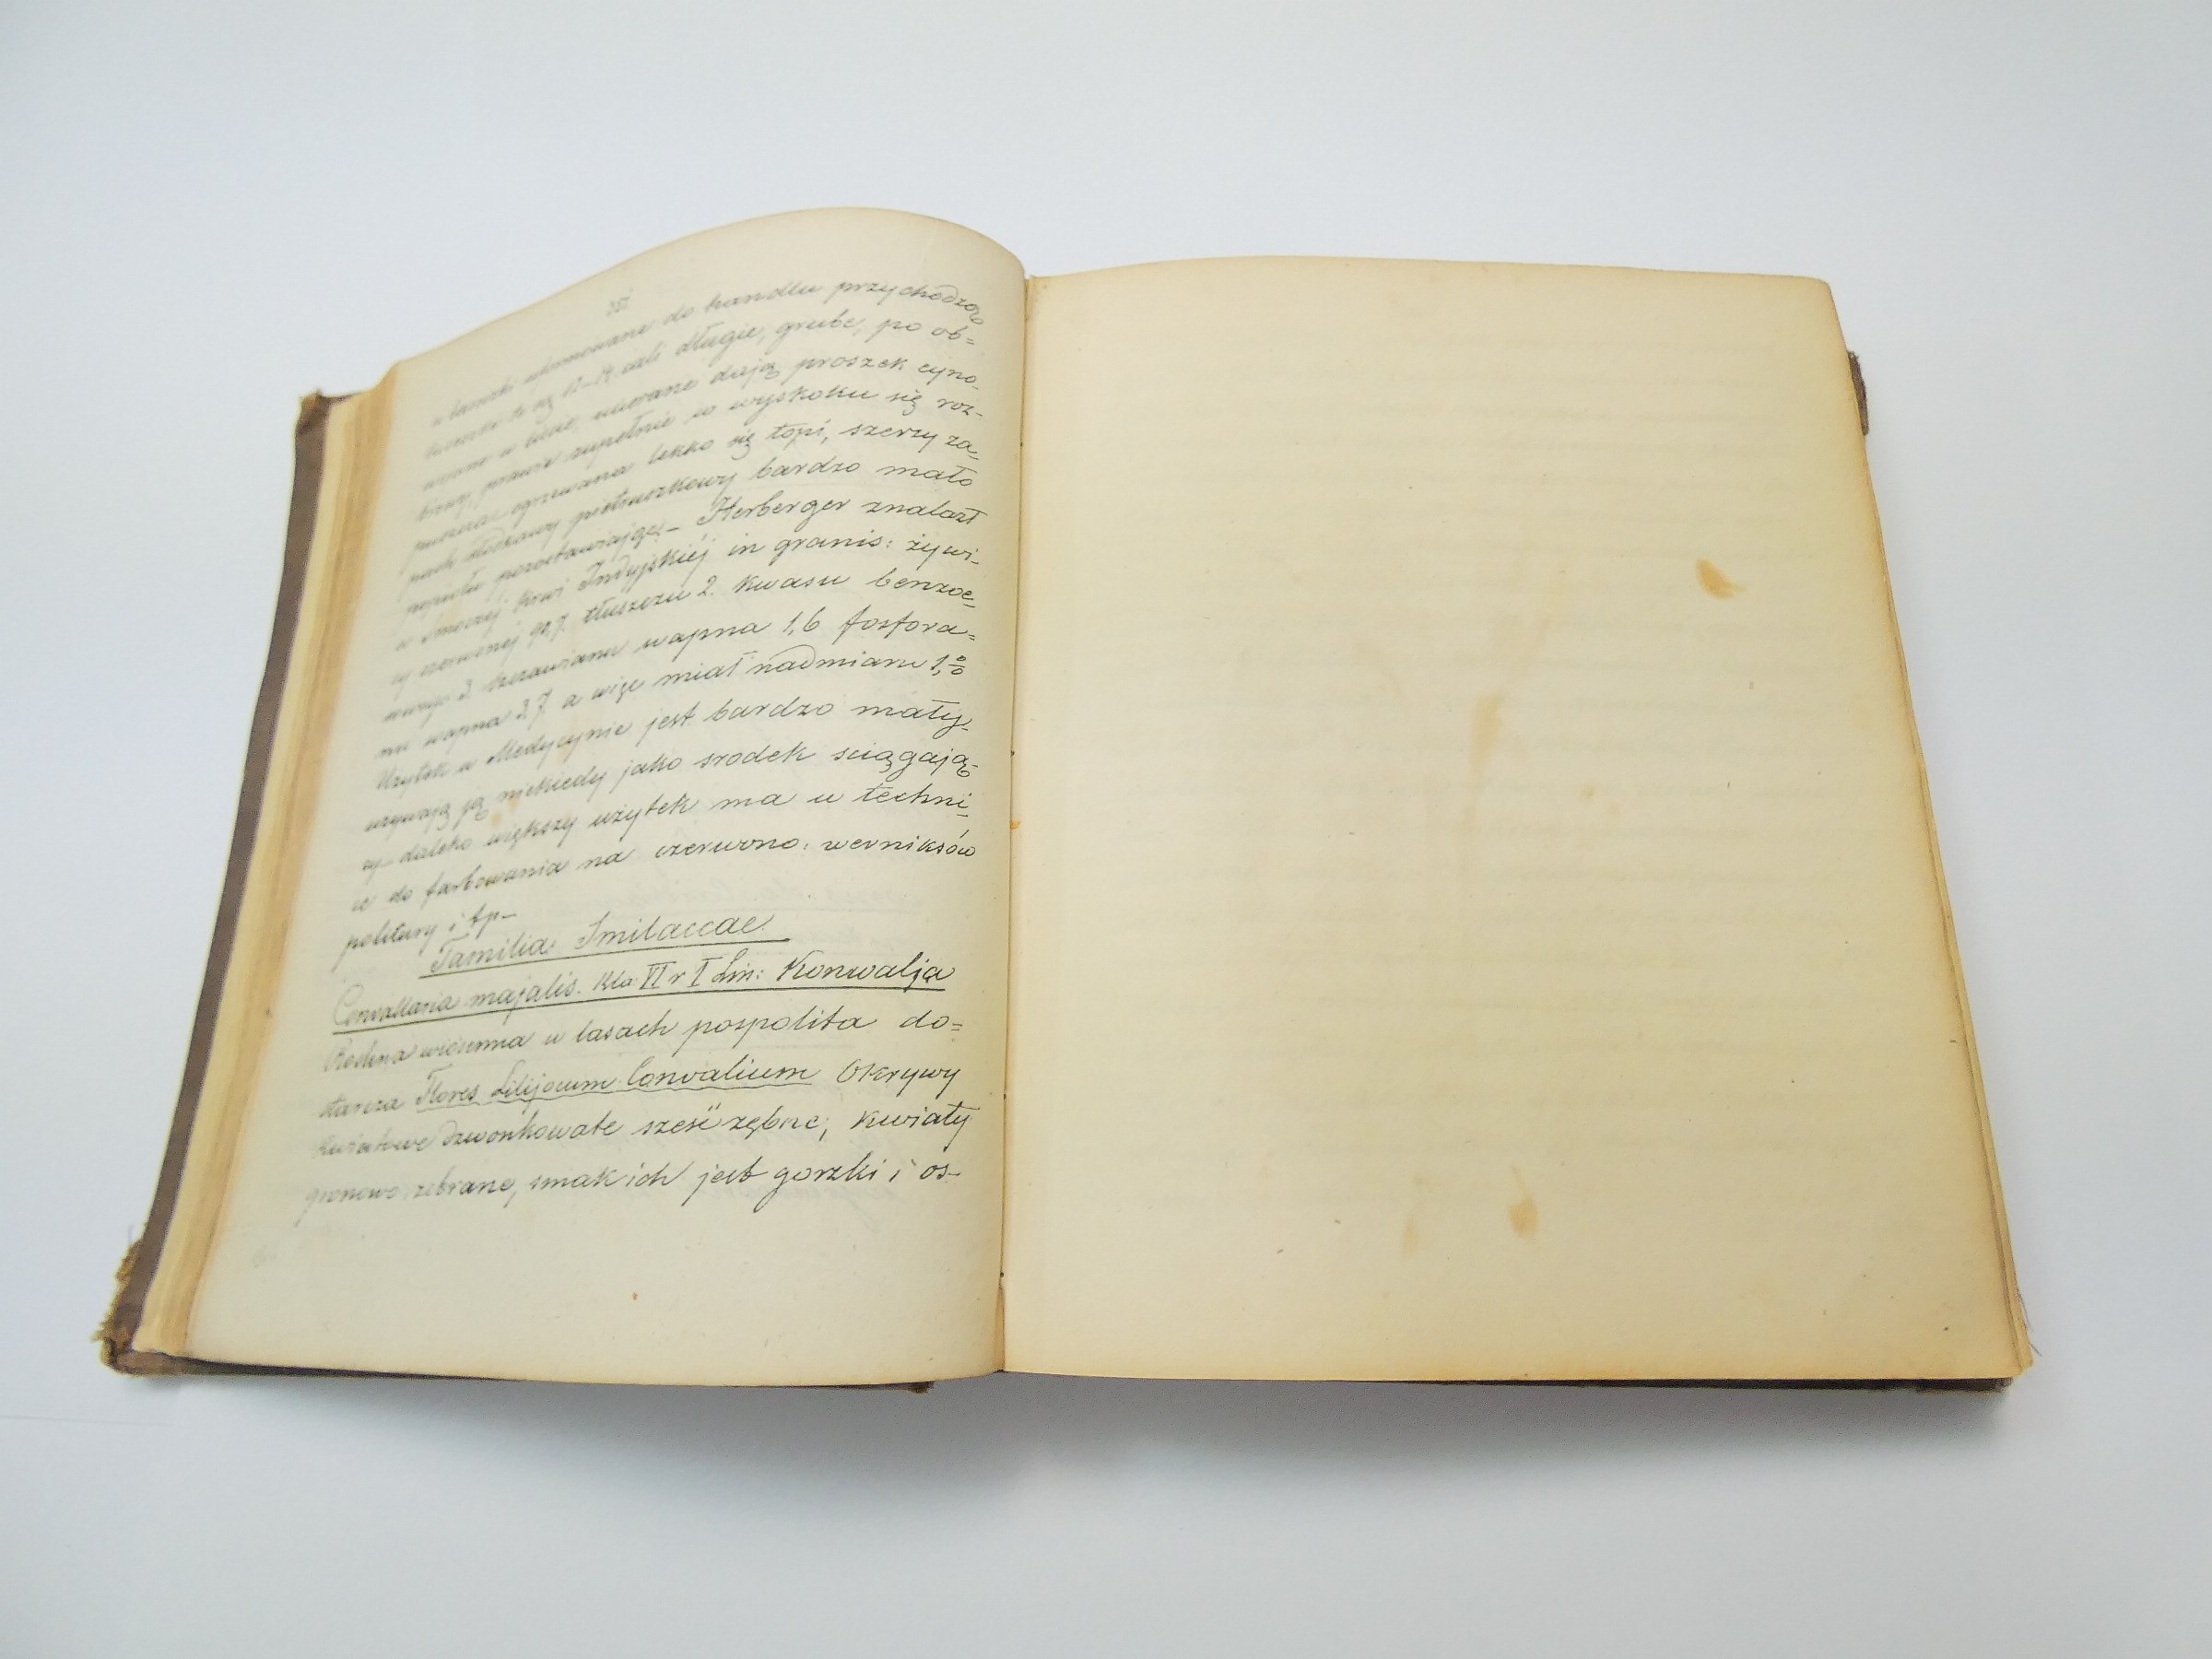 w laseczki uformowane do handlu przychodzą
laseczki te są 12–14 cali długie, grube, po ob=
wijane w liście, utarane dają proszek cyno-
browy, prawie zupełnie w wyskoku się roz-
puszcza ogrzewana lekko się topi, szerzy za-
pach słodkawy pietruszkowy bardzo mało
popiołu pozostawiając.– Herberger znalazł
w Smoczej Krwi Indyjskiéj in granis: żywi-
cy czerwonej 90,7. tłuszczu 2. kwasu benzoe-
sowego 3. szczawianu wapna 1,6 fosfora=
nu wapna 3,7 a więc miał nadmiaru 1,%
Użytek w Medycynie jest bardzo mały,
używają ją niekiedy jako srodek sciągają-
cy– daleko większy użytek ma w techni-
ce do farbowania na czerwono: werniksów
politury i tp–
Familia: Smilaceae.
Convallaria majalis. Kla: VI r I Lin: Konwalja
Roslina wiosenna w lasach pospolita do=
starcza Flores Lilijorum Convalium Okrywy
kwiatowe dzwonkowate sześć zębne, kwiaty
gronowo zebrane, smak ich jest gorzki i os-